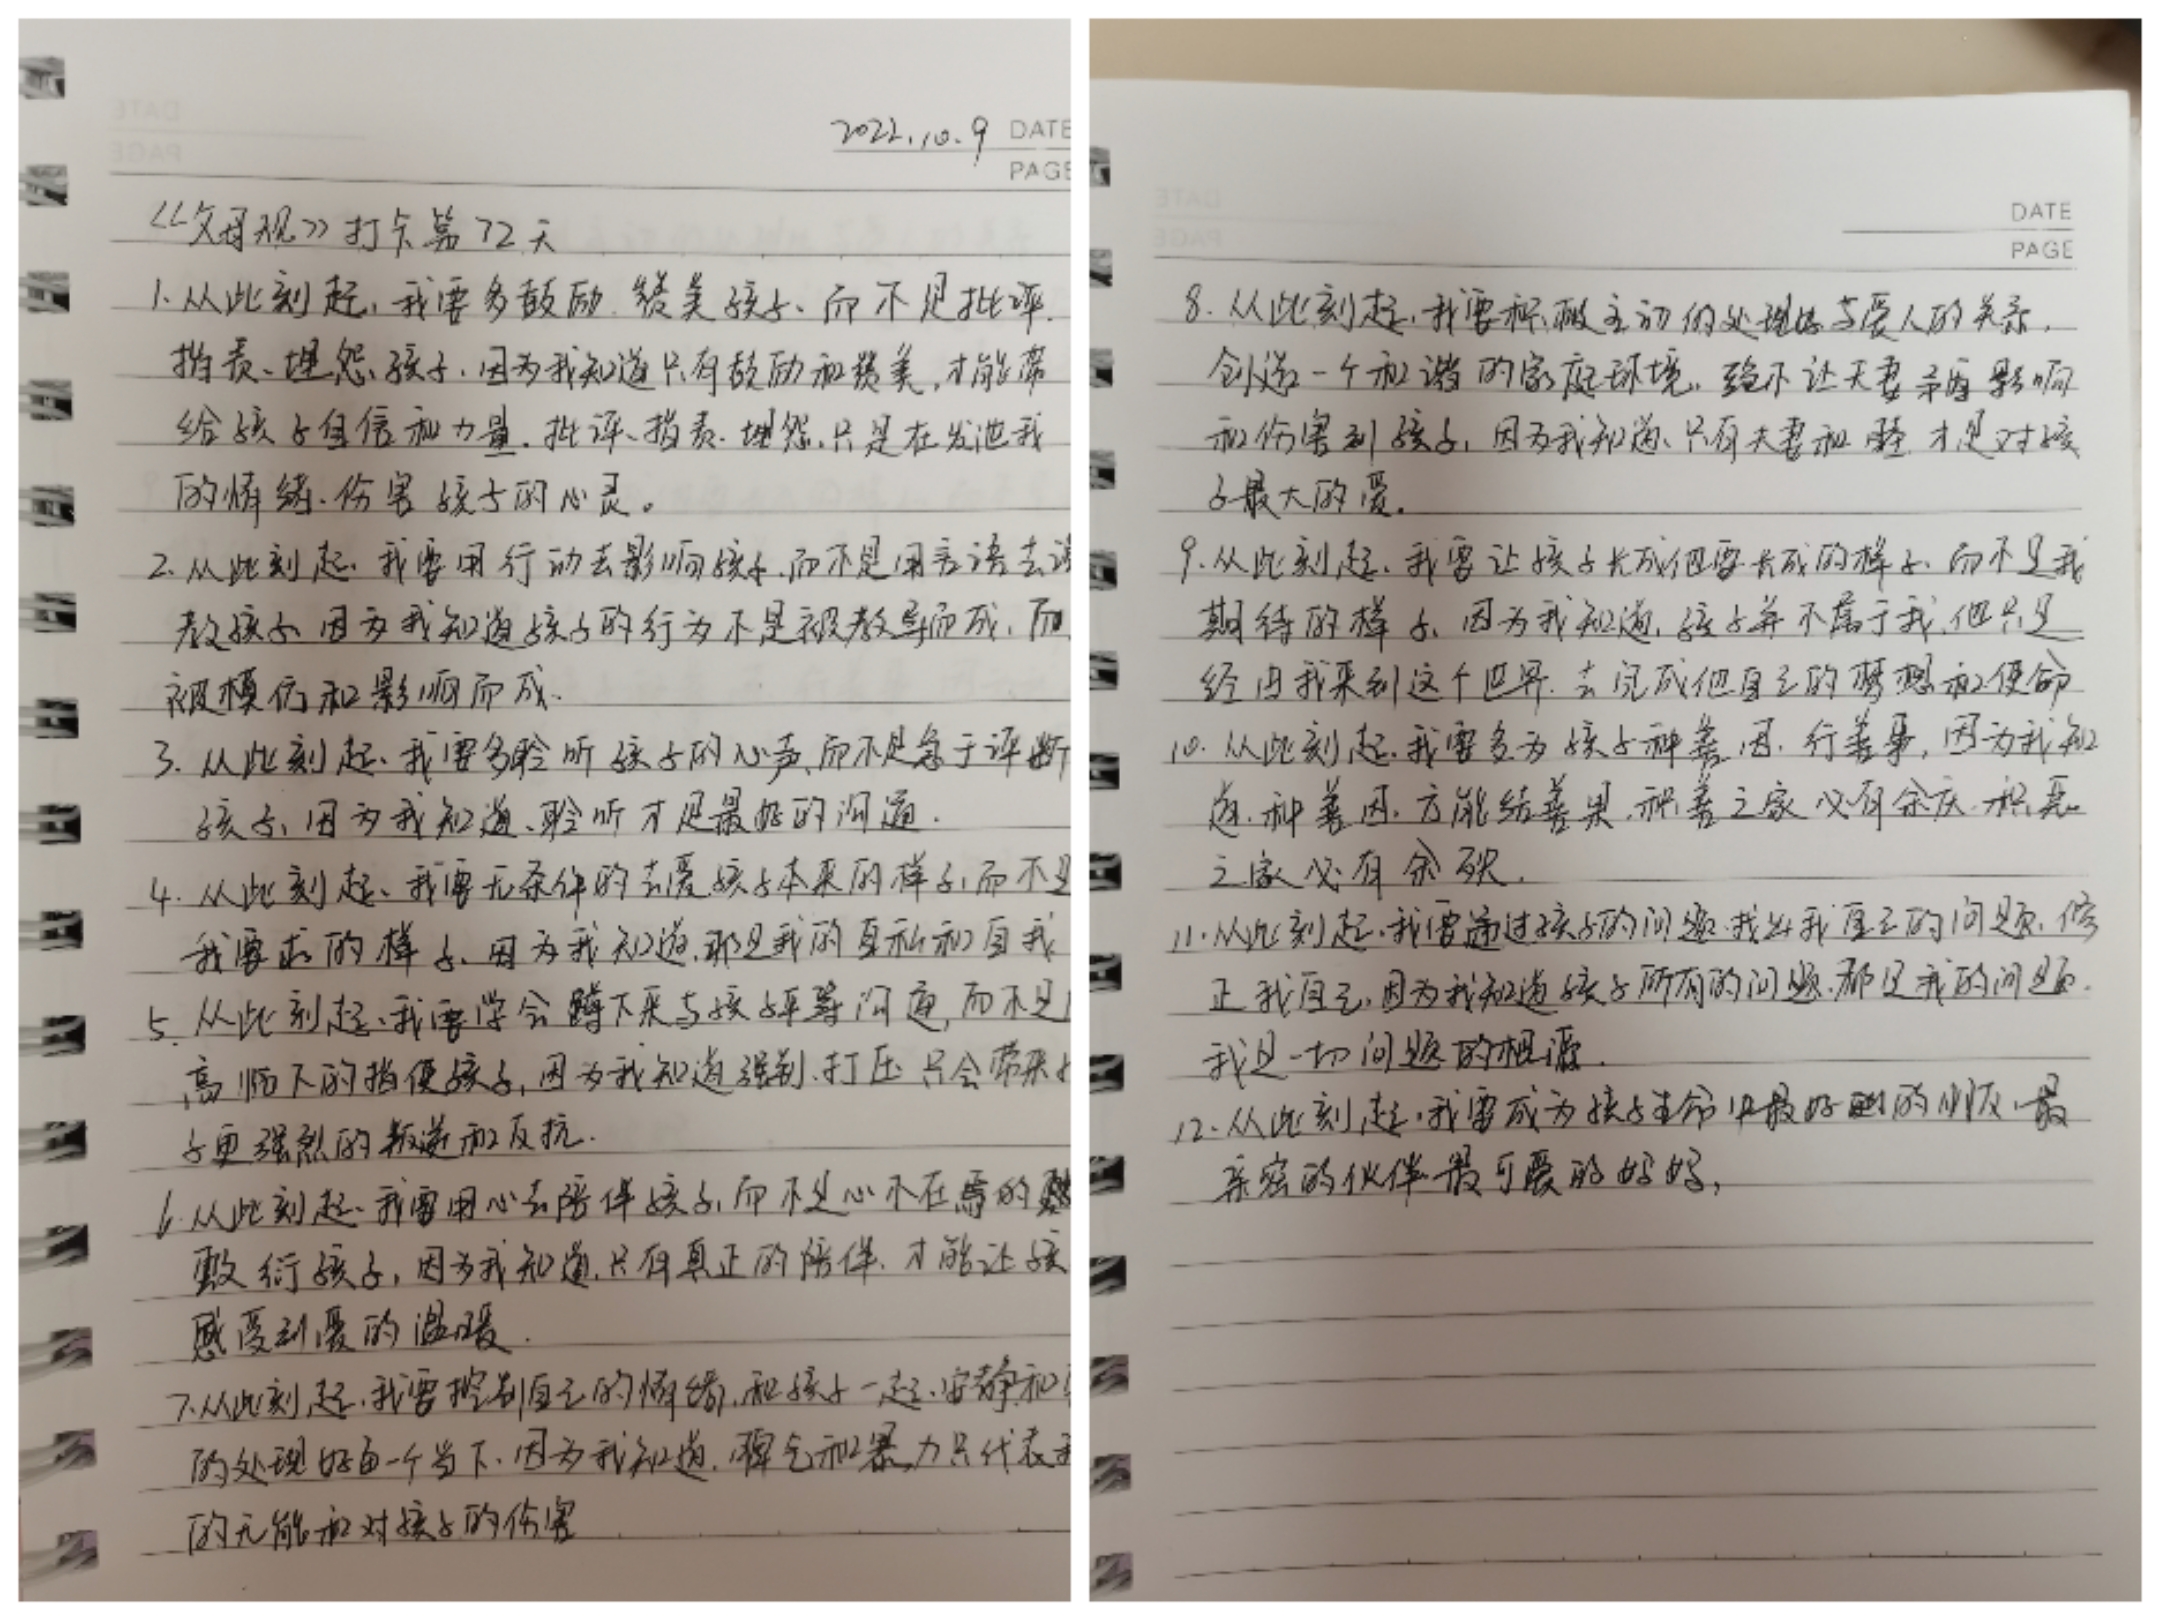 2022.10.9 DATE
PAGE
《父母观》打卡第72天
1. 从此刻起,我要多鼓励、赞美孩子、而不是批评、
指责、埋怨、孩子、因为我知道只有鼓励和赞美,才能带
给孩子自信和力量,批评、指责、埋怨,只是在发泄我
的情绪、伤害孩子的心灵。
2. 从此刻起、我要用行动去影响孩子、而不是用言语去说
教孩子、因为我知道孩子的行为不是被教导而成,而
被模仿和影响而成.
3. 从此刻起、我要多聆听孩子的心声,而不是急于评断
孩子、因为我知道、聆听才是最好的沟通.
4. 从此刻起、我要无条件的去爱孩子本来的样子,而不是
我要求的样子、因为我知道,那是我的自私和自我
5. 从此刻起、我要学会蹲下来与孩子平等沟通,而不是
高临下的指使孩子,因为我知道强制、打压只会带来
子更强烈的叛逆和反抗.
6. 从此刻起、我要用心去陪伴孩子,而不是心不在焉的
敷衍孩子,因为我知道,只有真正的陪伴、才能让孩
感受到爱的温暖.
7. 从此刻起、我要控制自己的情绪,和孩子一起、安静和
的处理好每一个当下、因为我知道,脾气和暴力只代表
的无能和对孩子的伤害
DATE
PAGE
8. 从此刻起,我要积极主动的处理好与爱人的关系,
创造一个和谐的家庭环境,绝不让夫妻矛盾影响
和伤害到孩子,因为我知道、只有夫妻和睦才是对孩
子最大的爱.
9. 从此刻起、我要让孩子长成他要长成的样子、而不是我
期待的样子、因为我知道,孩子并不属于我,他只是
经由我来到这个世界、去完成他自己的梦想和使命
10. 从此刻起,我要多为孩子种善因、行善事,因为我知
道、种善因、方能结善果、积善之家必有余庆、积恶
之家必有余殃.
11. 从此刻起、我要通过孩子的问题、找出我自己的问题、修
正我自己、因为我知道孩子所有的问题、都是我的问题.
我是一切问题的根源.
12. 从此刻起,我要成为孩子生命中最好的朋友、最
亲密的伙伴、最可爱的妈妈,